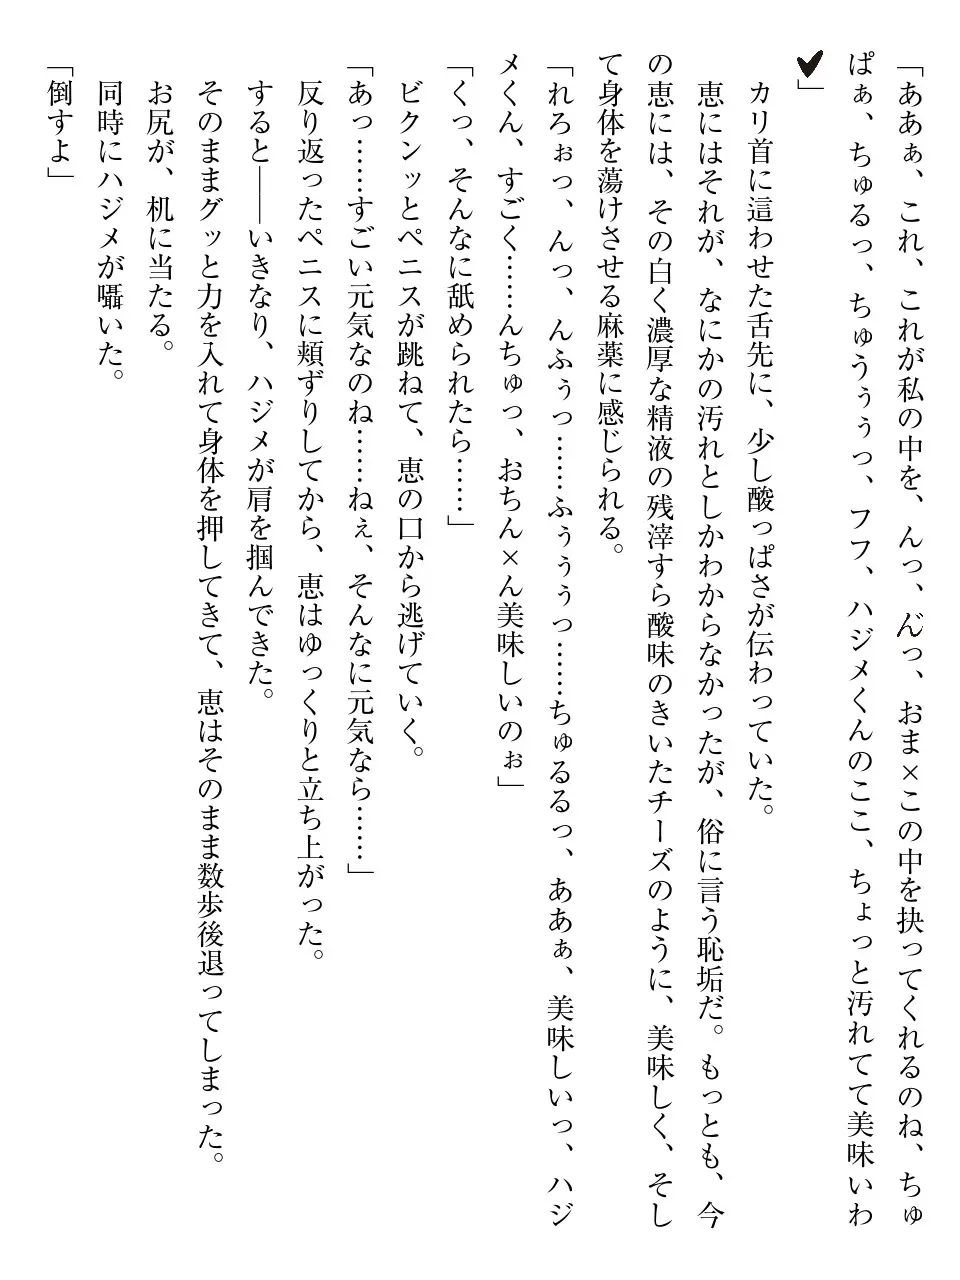 「ああぁ、これ、これが私の中を、んっ、ん゛っ、おま×この中を抉ってくれるのね、ちゅ
ぱぁ、ちゅるっ、ちゅうぅぅっ、フフ、ハジメくんのここ、ちょっと汚れてて美味いわ
♥」
カリ首に這わせた舌先に、少し酸っぱさが伝わっていた。
恵にはそれが、なにかの汚れとしかわからなかったが、俗に言う恥垢だ。もっとも、今
の恵には、その白く濃厚な精液の残滓すら酸味のきいたチーズのように、美味しく、そし
て身体を蕩けさせる麻薬に感じられる。
「れろぉっ、んっ、んふぅっ……ふぅぅぅっ……ちゅるるっ、ああぁ、美味しいっ、ハジ
メくん、すごく……んちゅっ、おちん×ん美味しいのぉ」
「くっ、そんなに舐められたら……」
ビクンッとペニスが跳ねて、恵の口から逃げていく。
「あっ……すごい元気なのね……ねぇ、そんなに元気なら……」
反り返ったペニスに頬ずりしてから、恵はゆっくりと立ち上がった。
すると――いきなり、ハジメが肩を掴んできた。
そのままグッと力を入れて身体を押してきて、恵はそのまま数歩後退ってしまった。
お尻が、机に当たる。
同時にハジメが囁いた。
「倒すよ」